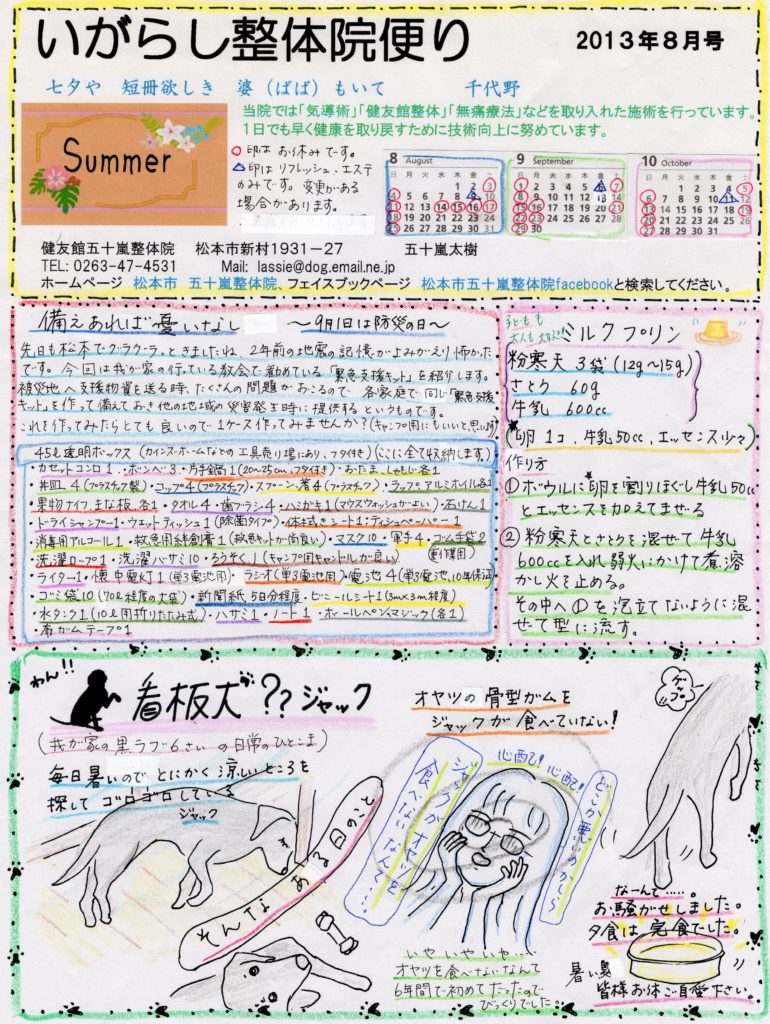 いがらし整体院便り
2013年8月号
七夕や 短冊欲しき 婆（ばば）もいて 千代野
当院では「気導術」「健友館整体」「無痛療法」などを取り入れた施術を行っています。
1日でも早く健康を取り戻すために技術向上に努めています。
Summer
○印は お休みです。
△印は リフレッシュ、エステ
のみです。変更がある
場合があります。
8 August
日 月 火 水 木 金 土
1 2 3
4 5 6 7 8 9 10
11 12 13 14 15 16 17
18 19 20 21 22 23 24
25 26 27 28 29 30 31
9 September
日 月 火 水 木 金 土
1 2 3 4 5 6 7
8 9 10 11 12 13 14
15 16 17 18 19 20 21
22 23 24 25 26 27 28
29 30
10 October
日 月 火 水 木 金 土
1 2 3 4 5
6 7 8 9 10 11 12
13 14 15 16 17 18 19
20 21 22 23 24 25 26
27 28 29 30 31
健友館五十嵐整体院 松本市新村1931－27 五十嵐太樹
TEL: 0263-47-4531 Mail: lassie@dog.email.ne.jp
ホームページ 松本市 五十嵐整体院、フェイスブックページ 松本市五十嵐整体院facebookと検索してください。
備えあれば憂いなし ～9月1日は防災の日～
先日も松本でグラグラっときましたね。2年前の地震の記憶がよみがえり怖かった
です。今回は我が家の行っている教会で勧めている「緊急支援キット」を紹介します。
被災地へ支援物資を送る時、たくさんの問題がおこるので 各家庭で同じ「緊急支援
キット」を作って備えておき他の地域の災害発生時に提供するというものです。
これを作ってみたらとても良いので1ケース作ってみませんか？（キャンプ用にもいいと思います）
45ℓ透明ボックス（カインズ・ホームなどの工具売り場にあり、フタ付き）（ここに全て収納します）
・カセットコンロ1・ボンベ3・片手鍋1（20cm～25cm、フタ付き）・おたま、しゃもじ各1
・丼皿4（プラスチック製）・コップ4（プラスチック）・スプーン、箸4（プラスチック）・ラップアルミホイル各1
・果物ナイフ、まな板 各1・タオル4・歯ブラシ4・ハミガキ1（マウスウォッシュがよい）・石けん1
・ドライシャンプー1・ウェットティッシュ1（除菌タイプ）・体拭きシート1・ティシュペーパー1
・消毒用アルコール1・救急用絆創膏1（救急キットが尚良い）・マスク10・軍手4・ゴム手袋2
・洗濯ロープ1・洗濯バサミ10・ろうそく1（キャンプ用キャンドルが良い）
・ライター1・懐中電灯1（単3電池用）・ラジオ（単3電池用）・電池4（単3電池、10年保証）
・ゴミ袋10（70ℓ程度の大袋）・新聞紙5日分程度・ビニールシート1（3m×3m程度）
・水タンク1（10ℓ用折りたたみ式）・ハサミ1・ノート1・ボールペン、マジック（各1）
・布ガムテープ1
子どもも
大人も大好き！
ミルクプリン
粉寒天 3袋（12g～15g）
さとう 60g
牛乳 600cc
（卵1コ、牛乳50cc、エッセンス少々）
作り方
①ボウルに卵を割りほぐし牛乳50cc
とエッセンスを加えてまぜる
②粉寒天とさとうを混ぜて牛乳
600ccを入れ弱火にかけて煮溶
かし火を止める。
その中へ①を泡立てないように混
ぜて型に流す。
わん!!
看板犬"?? ジャック
（我が家の黒ラブ6さい の日常のひとこま）
毎日暑いので とにかく涼しいところを
探して ゴロゴロしている
ジャック
そんなある日のこと
オヤツの骨型ガムを
ジャックが食べていない！
心配！心配！
ジャックがオヤツを
食べないなんて…。
どこか悪いのかしら
いや いや いや…
オヤツを食べないなんて
6年間で初めてだったので
びっくりでした
ゲップ
なーんて……。
お騒がせしました。
夕食は完食でした。
暑い夏
皆様お体ご自愛下さい。